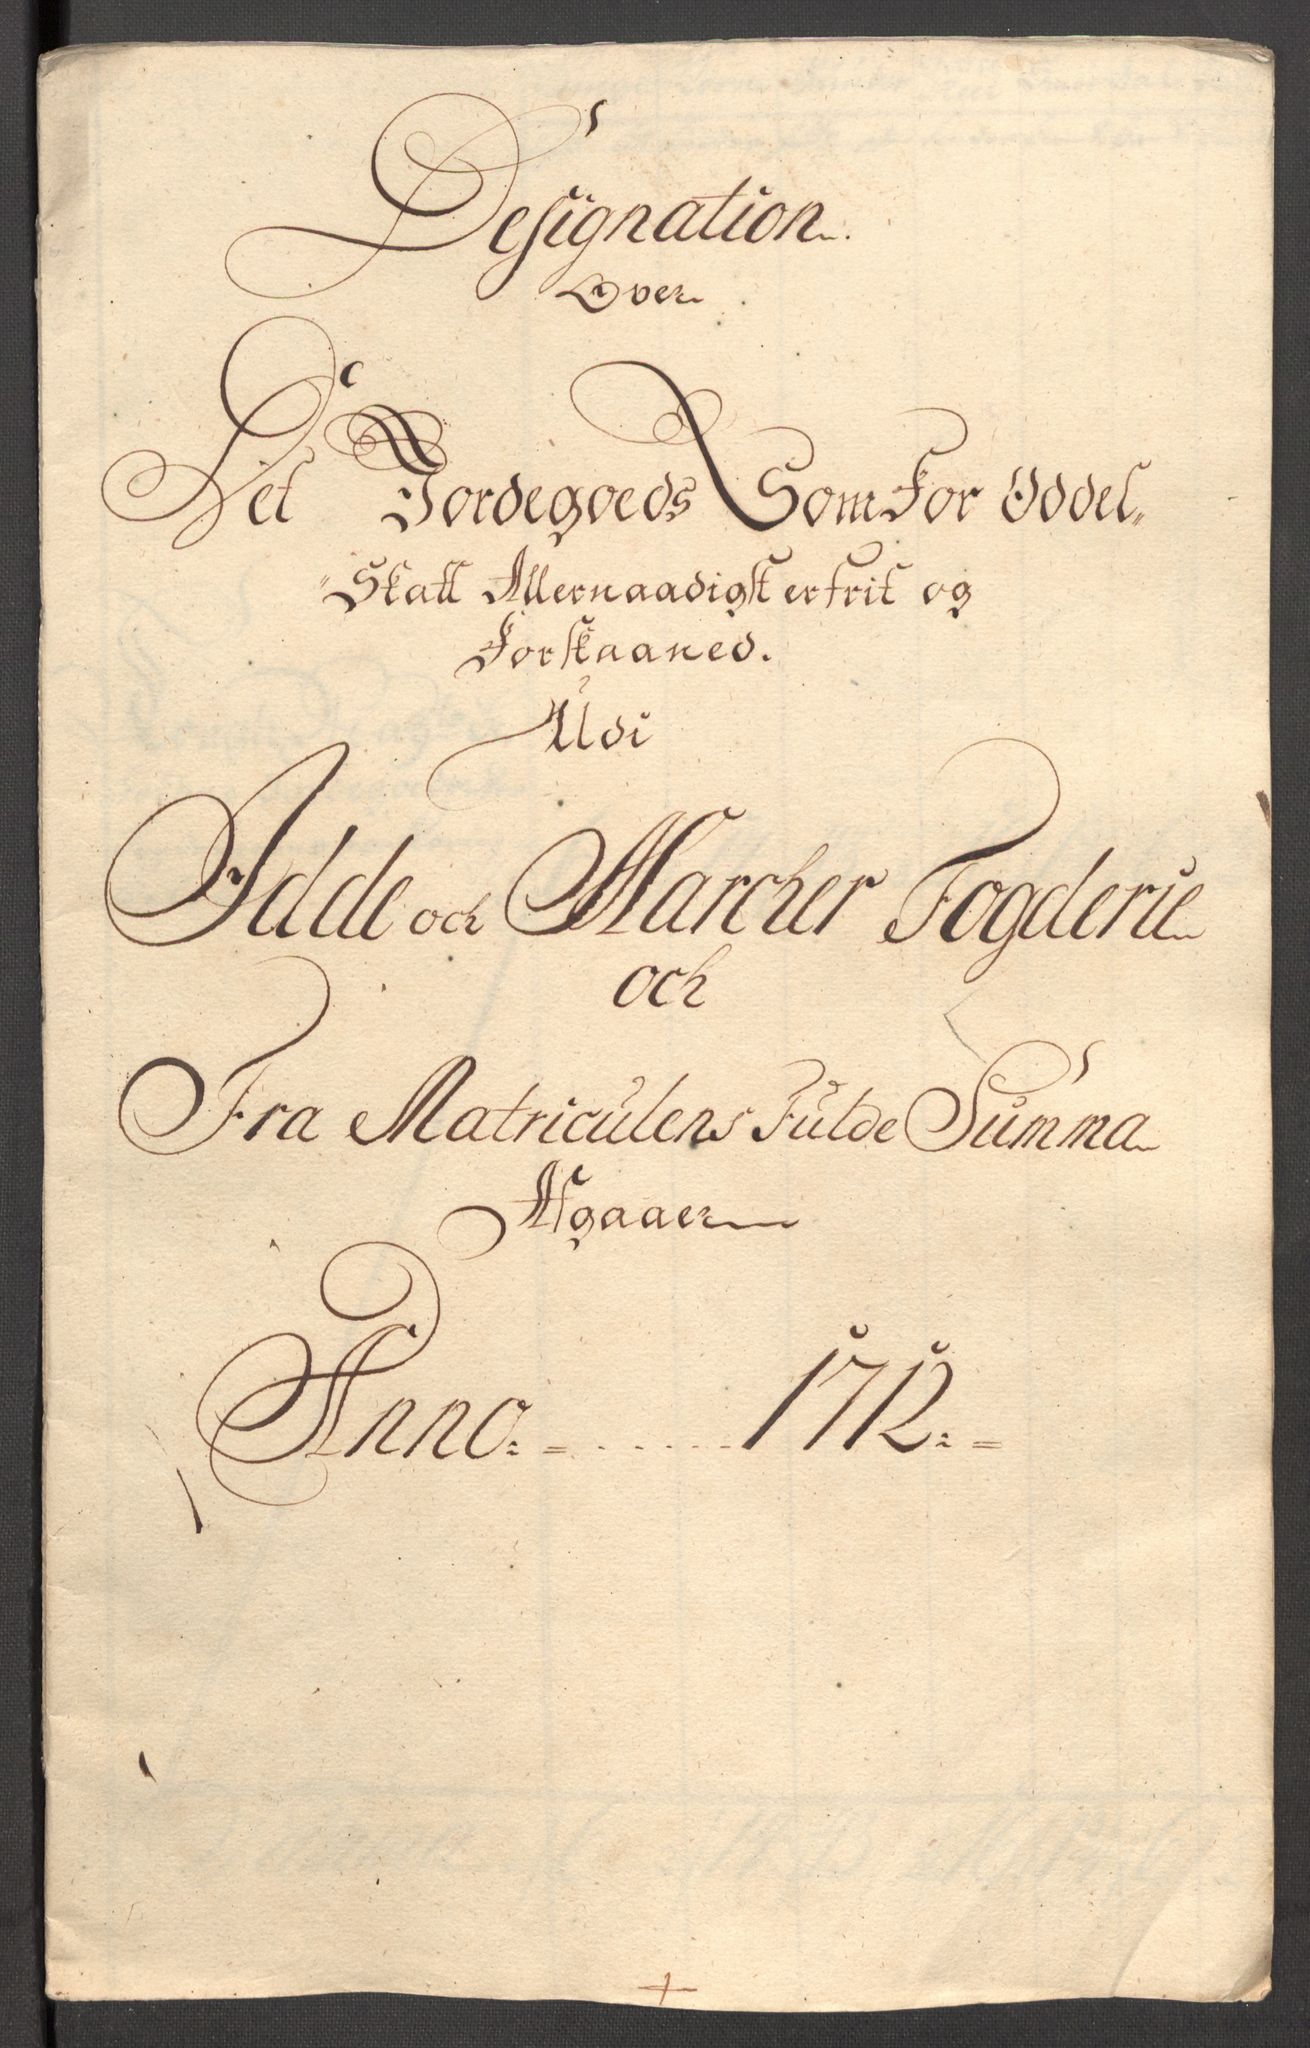 Designation
Over
Det Jordegoeds Som For Oddel-
Skatt Allernaadigst er frit og
Forskaaned.
Udi
Idde och Marcher Fogderie
och
Fra Matriculens Fulde Summa
Afgaaer
Anno: = ...... 1712: =